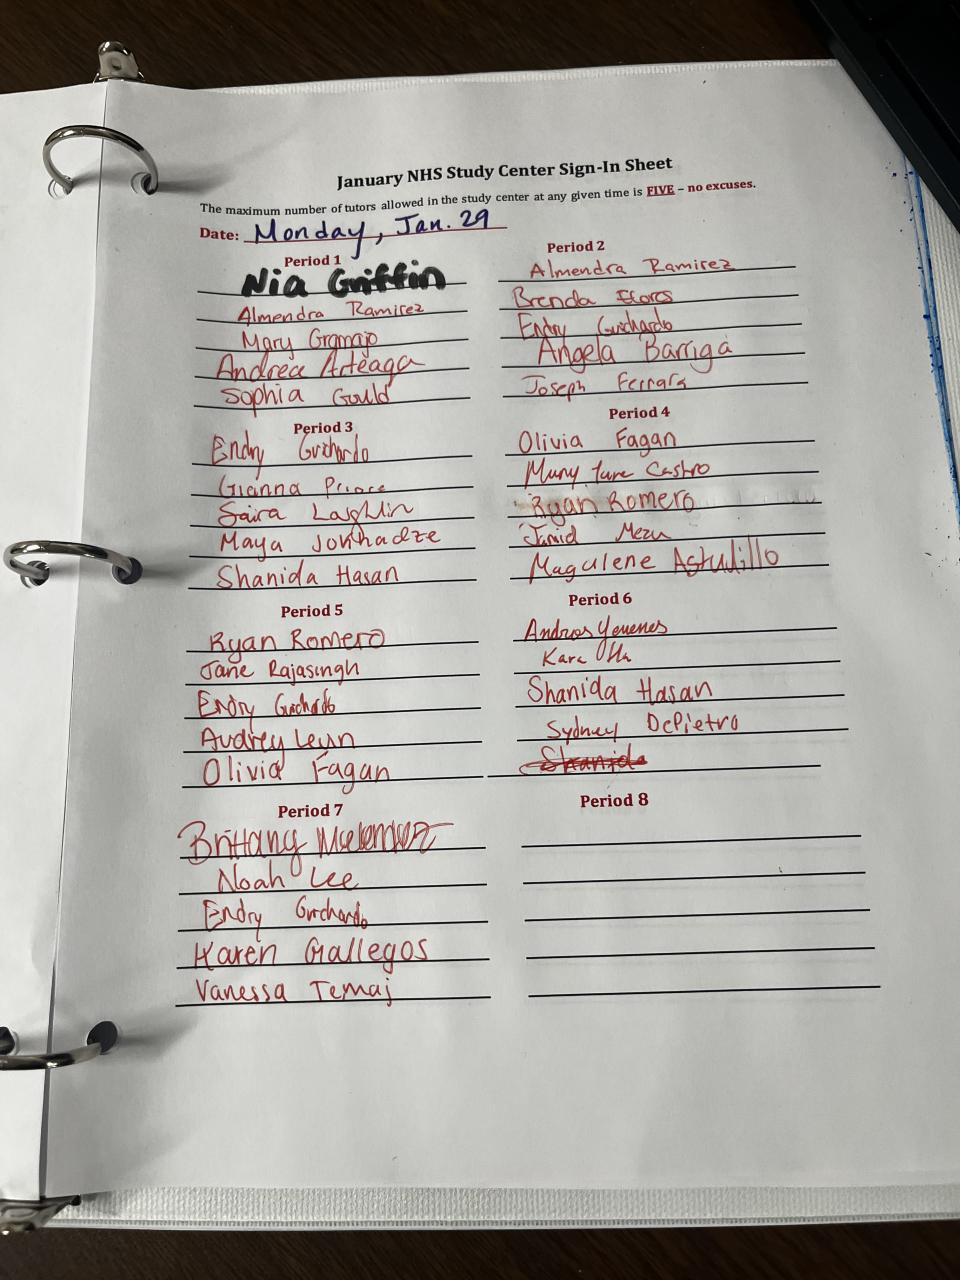 January NHS Study Center Sign-In Sheet
The maximum number of tutors allowed in the study center at any given time is FIVE – no excuses.
Date: Monday, Jan. 29
Period 1
Nia Griffin
Almendra Ramirez
Mary Gramajo
Andrea Arteaga
Sophia Gould
Period 2
Almendra Ramirez
Brenda Flores
Endry Guichardo
Angela Barriga
Joseph Ferrara
Period 3
Endry Guichardo
Gianna Prince
Saira Laghlin
Maya Jokhadze
Shanida Hasan
Period 4
Olivia Fagan
Castro
Ryan Romero
Magdlene Astudillo
Period 5
Ryan Romero
Jane Rajasingh
Endry Guichardo
Audrey Leyn
Olivia Fagan
Period 6
Andros Yevenes
Kara
Shanida Hasan
Sydney DePietro
Shanida
Period 7
Brittany
Noah Lee
Endry Guichardo
Karen Gallegos
Vanessa Temaj
Period 8